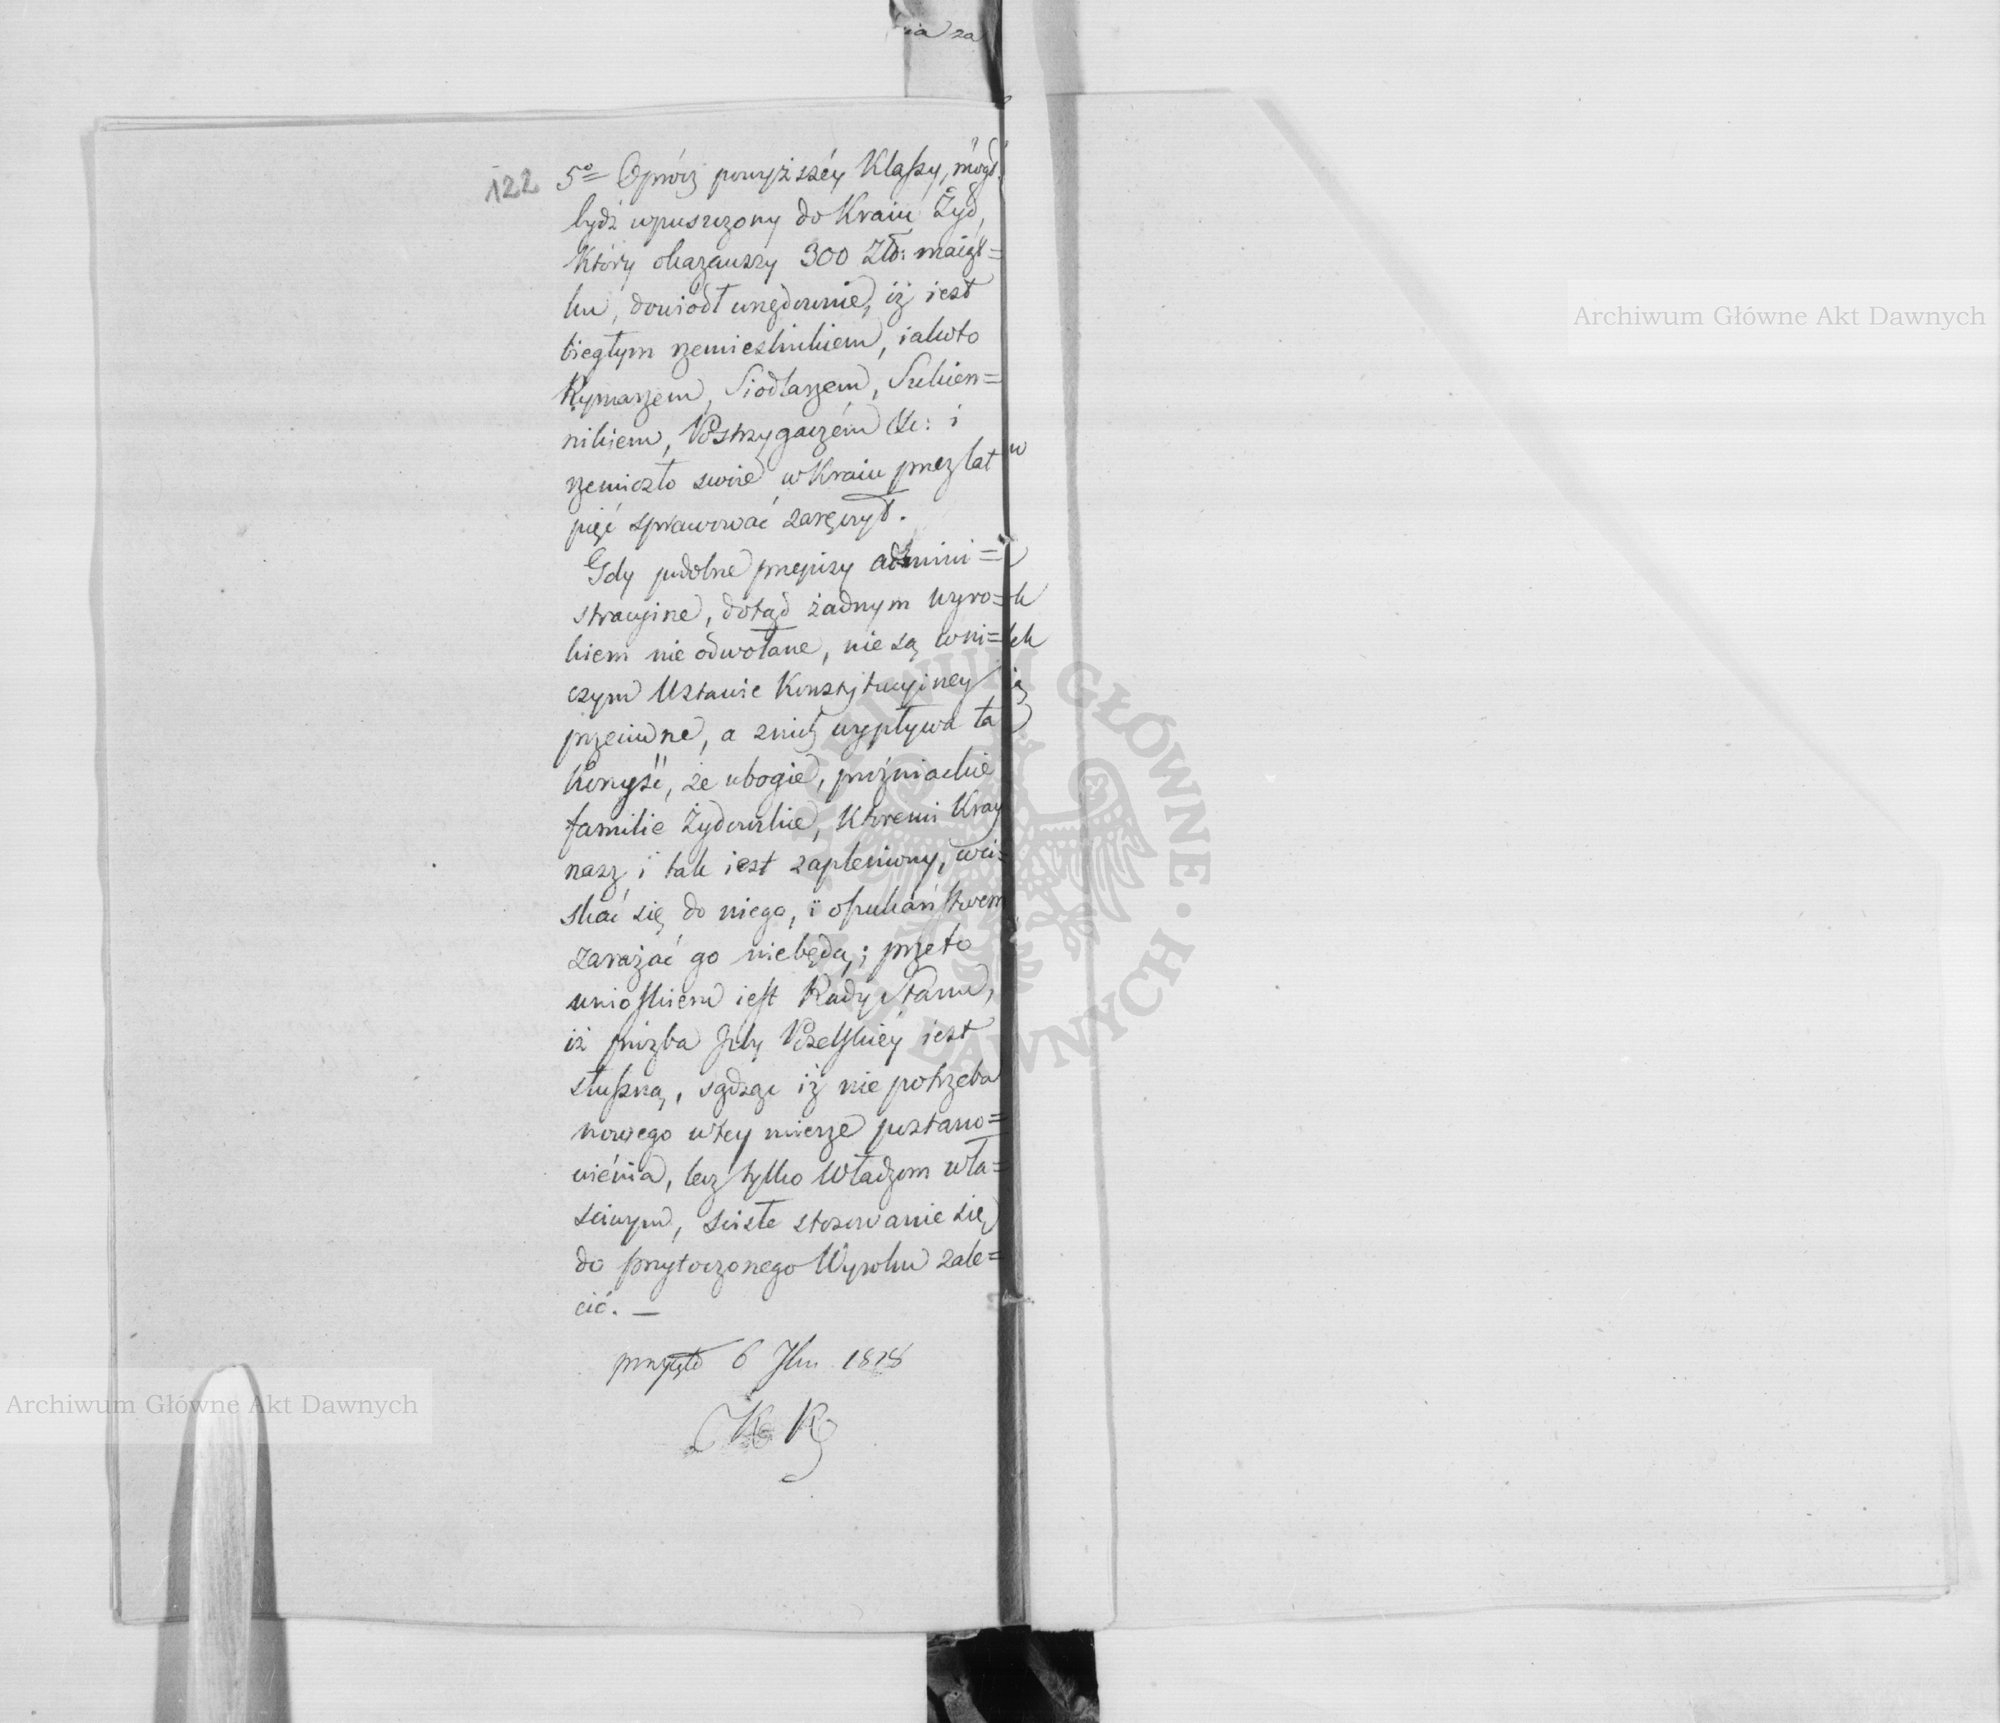 ia za
122
5º= Oprócz powyższéy Klaßy, mógł
bydź wpuszczony do Kraiu Żyd,
który okazawszy 300 Złł: maiąt=
ku, dowiódł urzędownie, iż iest
biegłym rzemieślnikiem, iakoto
Rymarzem, Siodlarzem, Sukien=
nikiem, Postrzygaczém &c: i
rzemiosło swoie w Kraiu przez lat
pięć sprawować zaręczył.
Gdy podobne przepisy admini=
stracyine, dotąd żadnym wyro=
kiem nie odwołane, nie są w ni=
czym Ustawie Konstytucyiney
przeciwne, a z nich wypływa ta
korzyść, że ubogie, próżniackie
familie Żydowskie, któremi Kray
nasz i tak iest zapleniony, wci=
skać się do niego, i opukaństwem
zarażać go niebędą; przeto
wnioskiem iest Rady Stanu,
iż prożba Izby Poselskiéy iest
słuszną, sądząc iż nie potrzeba
nowego w tey mierze postano=
wiénia, lecz tylko Władzom wła=
sciwym, scisłe stosowanie się
do przytoczonego Wyroku zale=
cić. —
przyięto 6 1818
Archiwum Główne Akt Dawnych
Archiwum Główne Akt Dawnych
ARCHIWUM GŁÓWNE • AKT DAWNYCH •